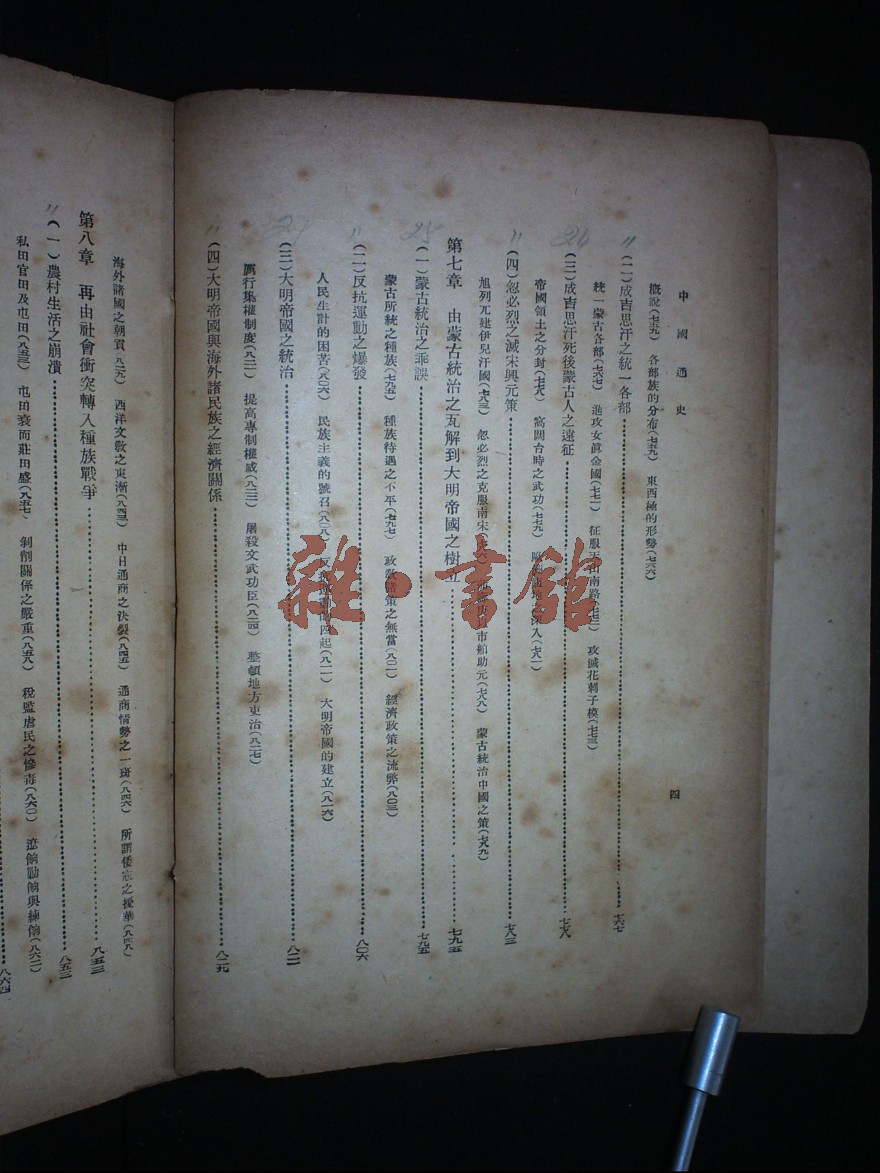 中國通史 四
概說(七五九) 各部族的分布(七五九) 東西極的形勢(七六六)
〃 (二)成吉思汗之統一各部 七六七
統一蒙古各部(七六七) 進攻女眞金國(七七一) 征服天山南路(七七二) 攻滅花剌子模(七七三)
24 (三)成吉思汗死後蒙古人之遠征 七七八
帝國領土之分封(七七八) 窩闊台時之武功(七七九) 深入(七八一)
〃 (四)忽必烈之滅宋興元策 七八三
旭列兀建伊兒汗國(七八三) 忽必烈之克服南宋 市舶助元(七八八) 蒙古統治中國之策(七八九)
第七章 由蒙古統治之瓦解到大明帝國之樹立 七九五
25 (一)蒙古統治之乖誤 七九五
蒙古所統之種族(七九五) 種族待遇之不平(七九七) 政策之無當(八〇一) 經濟政策之流弊(八〇三)
〃 (二)反抗運動之爆發 八〇六
人民生計的困苦(八〇六) 民族主義的號召(八〇八) 四起(八一一) 大明帝國的建立(八一六)
27 (三)大明帝國之統治 八二一
厲行集權制度(八二一) 提高專制權威(八二三) 屠殺文武功臣(八二四) 整頓地方吏治(八二七)
〃 (四)大明帝國與海外諸民族之經濟關係 八二九
海外諸國之朝貢(八二九) 西洋文敎之東漸(八四三) 中日通商之決裂(八四五) 通商情勢之一斑(八四六) 所謂倭寇之擾華(八四九)
第八章 再由社會衝突轉入種族戰爭 八五三
〃 (一)農村生活之崩潰 八五三
私田官田及屯田(八五三) 屯田衰而莊田盛(八五七) 剝削關係之嚴重(八五八) 稅監虐民之慘毒(八六〇) 遼餉勦餉與練餉(八六二)
八六四
雜·書館